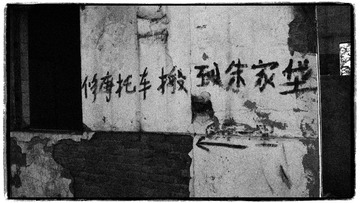 修摩托车搬到朱家垡